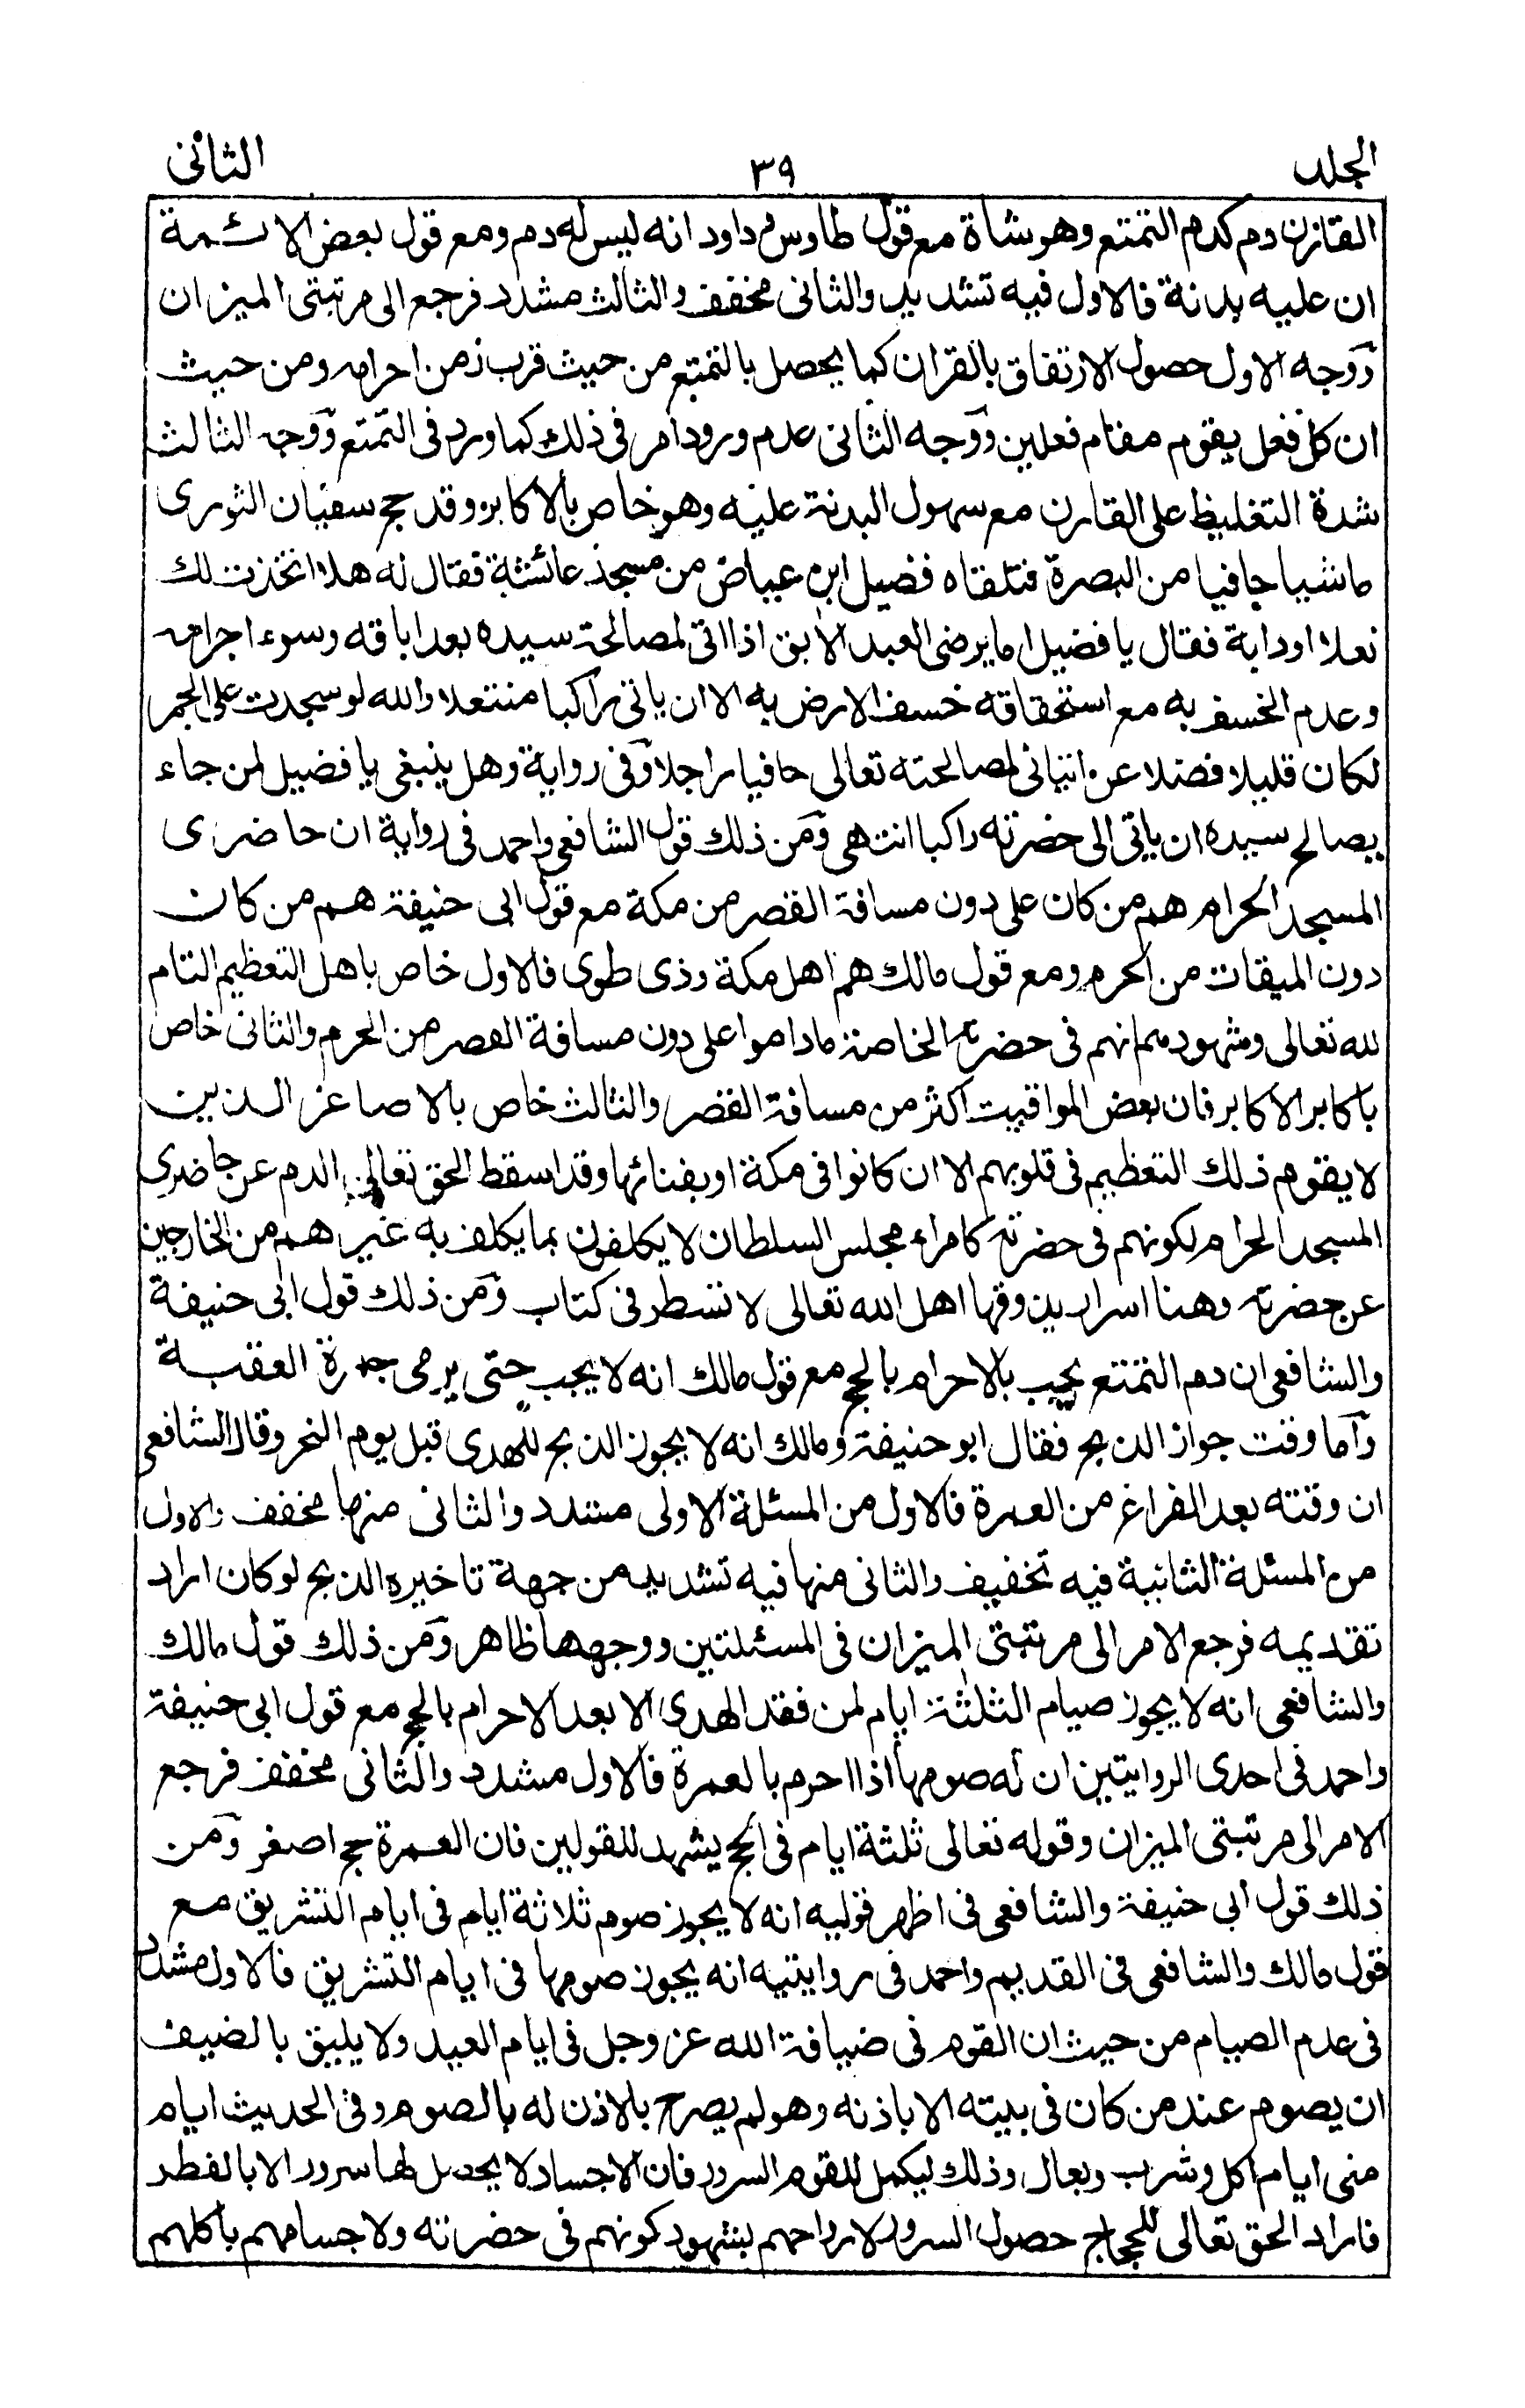 الجلد ٣٩ الثانى
القارن دم كدم التمتع وهو شاة مع قول طاوس وداود انه ليس له دم ومع قول بعض الائمة
ان عليه بدنة فالاول فيه تشديد والثانى مخفف والثالث مشدد فرجع الى مرتبتى الميزان
ووجه الاول حصول الارتفاق بالقران كما يحصل بالتمتع من حيث قرب زمن احرامه ومن حيث
ان كل فعل يقوم مقام فعلين ووجه الثانى عدم ورود امر فى ذلك كما ورد فى التمتع ووجه الثالث
شدة التغليظ على القارن مع سهول البدنة عليه وهو خاص بالاكابر وقد حج سفيان الثورى
ماشيا حافيا من البصرة فتلقاه فضيل ابن عياض من مسجد عائشة فقال له هلا اتخذت لك
نعلا اودابة فقال يا فضيل اما يرضى العبد الآبق اذا اتى لمصالحة سيده بعد اباقه وسوء اجرامه
وعدم الخسف به مع استحقاقه خسف الارض به الا ان ياتى راكبا منتعلا والله لو سجدت على الجمر
لكان قليلا فضلا عن اتيانى لمصالحته تعالى حافيا راجلا وفى رواية وهل ينبغى يا فضيل لمن جاء
يصالح سيده ان ياتى الى حضرته راكبا انتهى ومن ذلك قول الشافعى واحمد فى رواية ان حاضرى
المسجد الحرام هم من كان على دون مسافة القصر من مكة مع قول ابى حنيفة هم من كان
دون الميقات من الحرم ومع قول مالك هم اهل مكة وذى طوى فالاول خاص باهل التعظيم التام
لله تعالى وشهودهم انهم فى حضرته الخاصة ماداموا على دون مسافة القصر من الحرم والثانى خاص
باكابر الاكابر فان بعض المواقيت اكثر من مسافة القصر والثالث خاص بالاصاغر الذين
لا يقوم ذلك التعظيم فى قلوبهم الا ان كانوا فى مكة او بفنائها وقد اسقط الحق تعالى الدم عن حاضرى
المسجد الحرام لكونهم فى حضرته كامراء مجلس السلطان لا يكلفون بما يكلف به غيرهم من الخارجين
عن حضرته وهنا اسرار يذوقها اهل الله تعالى لا تسطر فى كتاب ومن ذلك قول ابى حنيفة
والشافعى ان دم التمتع يجب بالاحرام بالحج مع قول مالك انه لا يجب حتى يرمى جمرة العقبة
واما وقت جواز الذبح فقال ابو حنيفة ومالك انه لا يجوز الذبح للهدى قبل يوم النحر وقال الشافعى
ان وقته بعد الفراغ من العمرة فالاول من المسئلة الاولى مشدد والثانى منها مخفف والاول
من المسئلة الثانية فيه تخفيف والثانى منها فيه تشديد من جهة تاخيره الذبح لو كان اراد
تقديمه فرجع الامر الى مرتبتى الميزان فى المسئلتين ووجهها ظاهر ومن ذلك قول مالك
والشافعى انه لا يجوز صيام الثلثة ايام لمن فقد الهدى الا بعد الاحرام بالحج مع قول ابى حنيفة
واحمد فى احدى الروايتين ان له صومها اذا احرم بالعمرة فالاول مشدد والثانى مخفف فرجع
الامر الى مرتبتى الميزان وقوله تعالى ثلثة ايام فى الحج يشهد للقولين فان العمرة حج اصغر ومن
ذلك قول ابى حنيفة والشافعى فى اظهر قوليه انه لا يجوز صوم ثلاثة ايام فى ايام التشريق مع
قول مالك والشافعى فى القديم واحمد فى روايتيه انه يجوز صومها فى ايام التشريق فالاول مشدد
فى عدم الصيام من حيث ان القوم فى ضيافة الله عز وجل فى ايام العيد ولا يليق بالضيف
ان يصوم عند من كان فى بيته الا باذنه وهو لم يصرح بالاذن له بالصوم وفى الحديث ايام
منى ايام اكل وشرب وبعال وذلك ليكمل للقوم السرور فان الاجساد لا يحصل لها سرور الا بالفطر
فاراد الحق تعالى للحجاج حصول السرور لارواحهم بشهود كونهم فى حضرته ولاجسامهم باكلهم